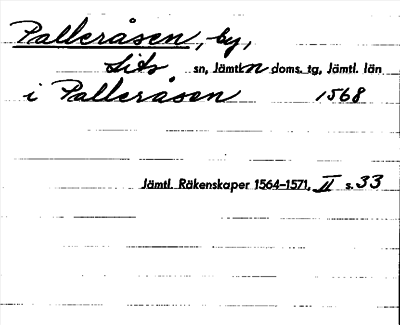 Palleråsen, by,
Lits sn, Jämtl. n doms. tg, Jämtl. län
i Palleråsen 1568
Jämtl. Räkenskaper 1564-1571, II s. 33